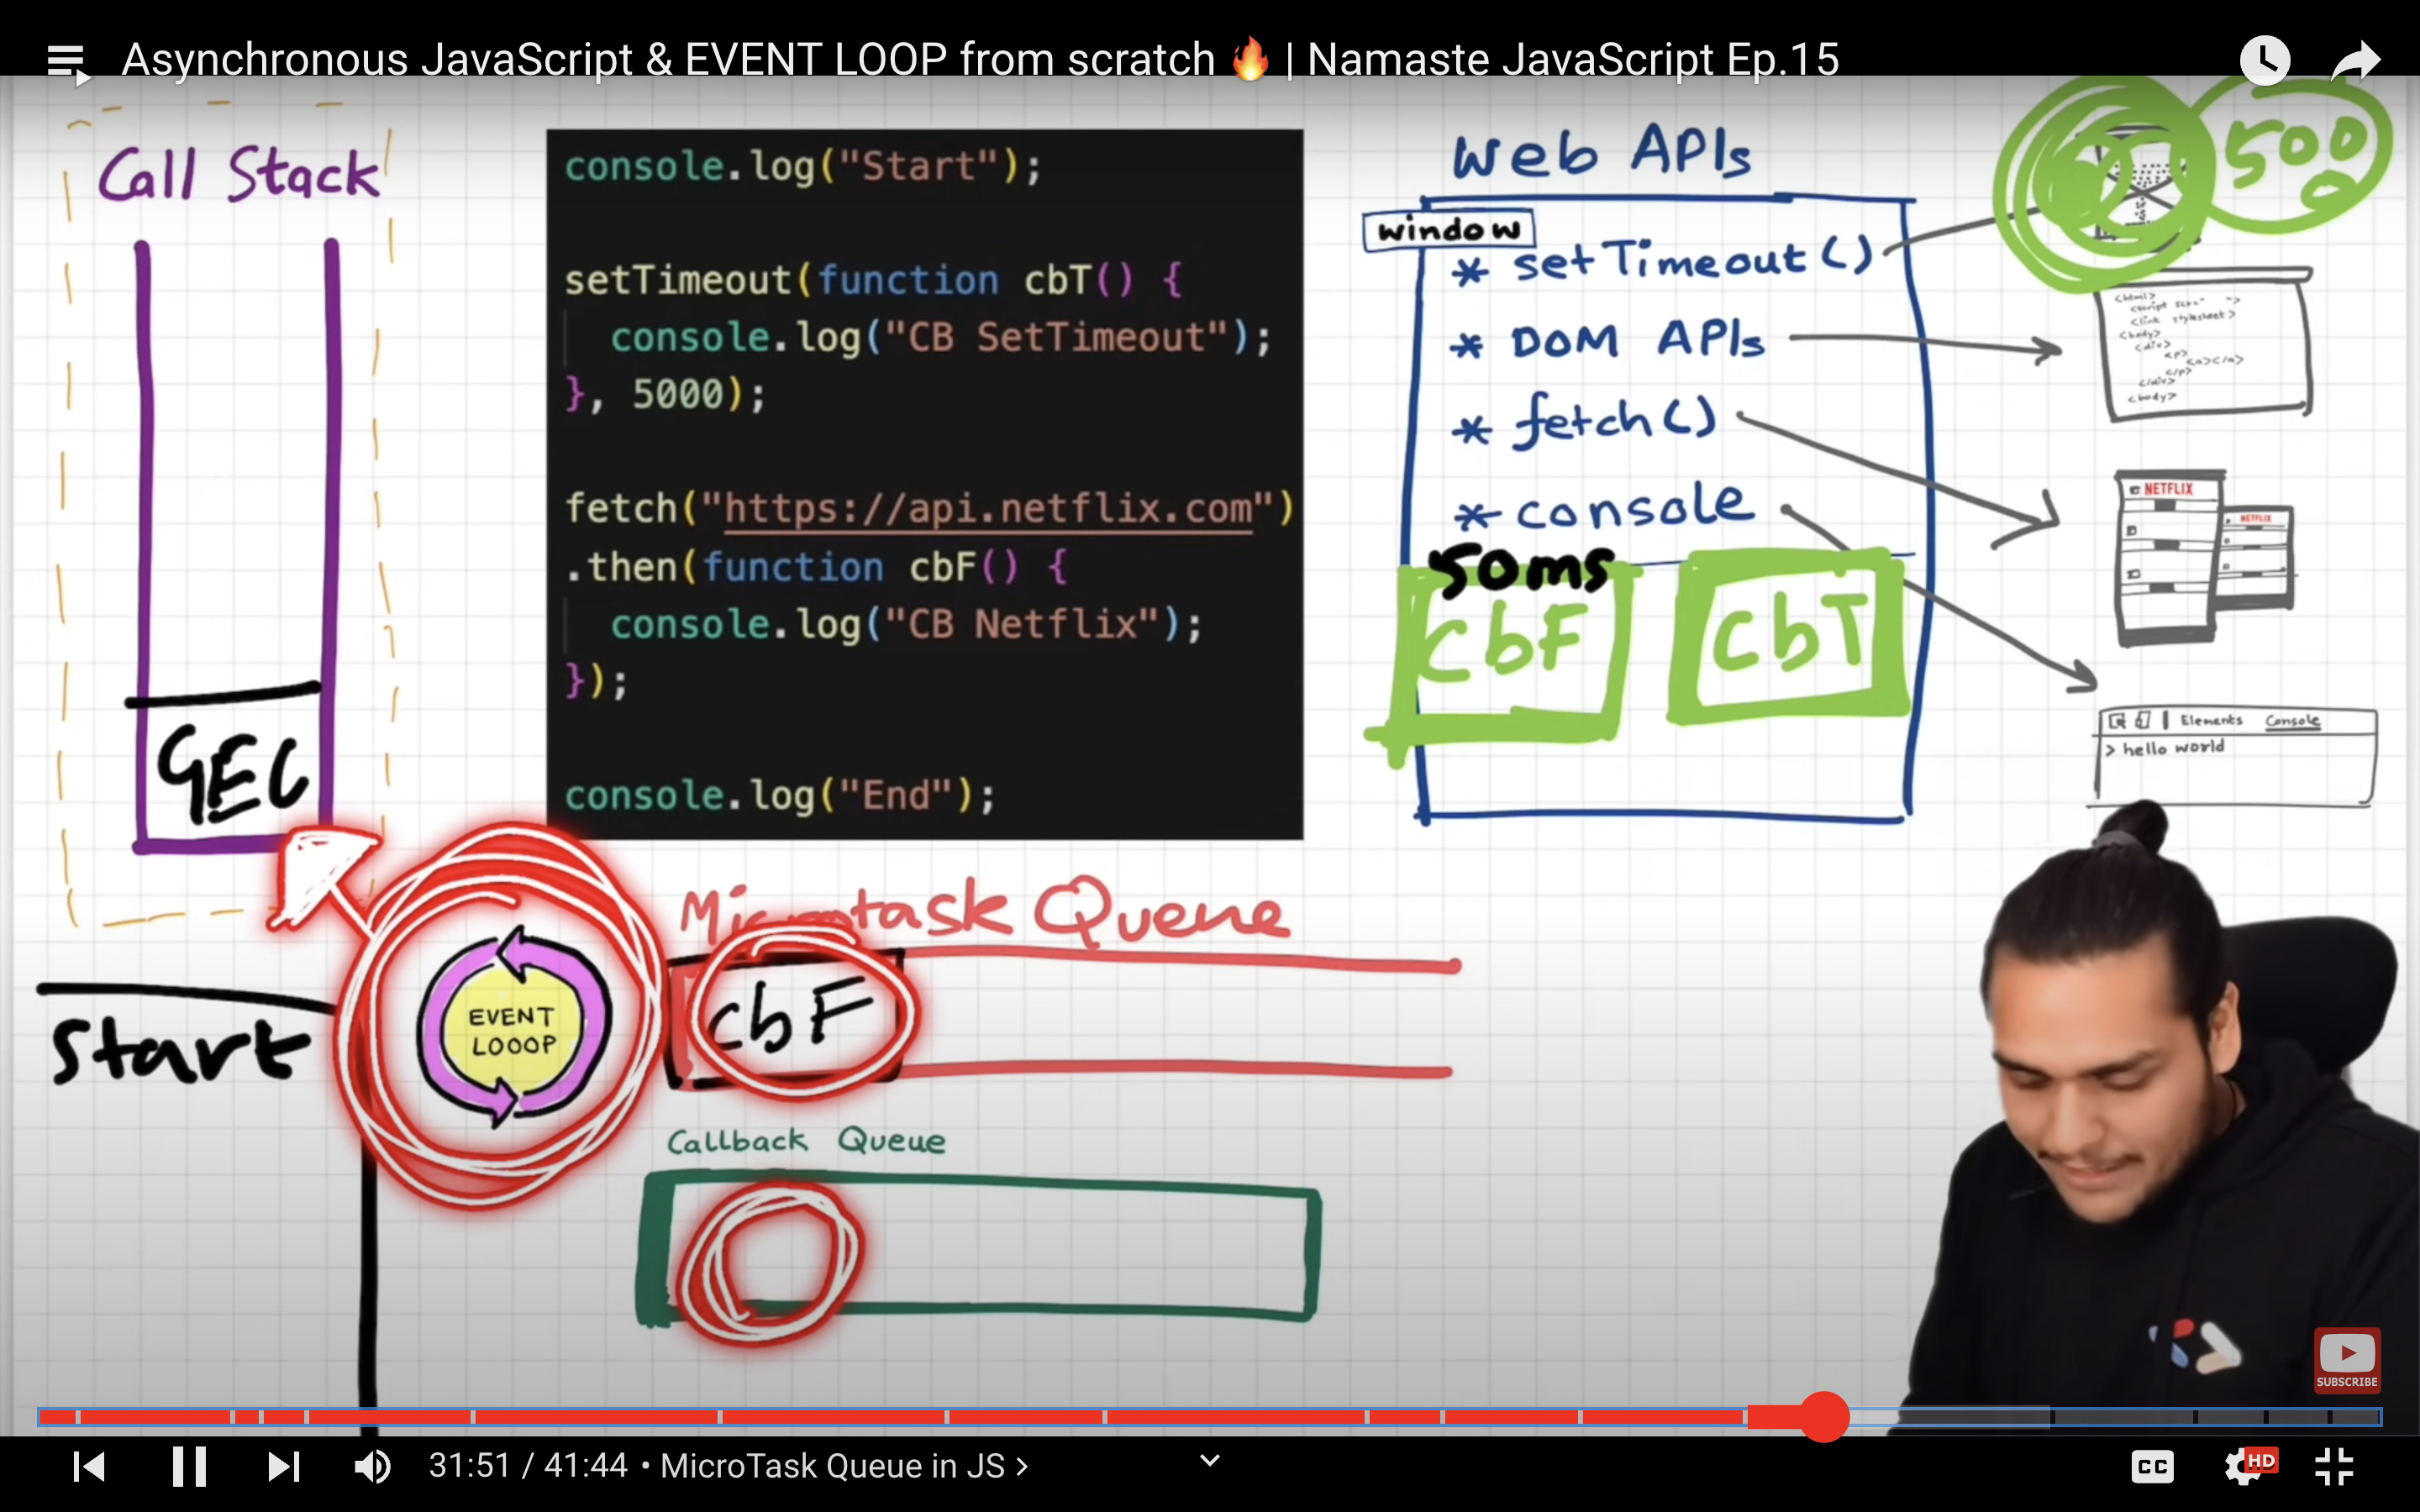 Asynchronous JavaScript & EVENT LOOP from scratch 🔥 | Namaste JavaScript Ep.15
Call Stack
GEC
console.log("Start");
setTimeout(function cbT() {
console.log("CB SetTimeout");
}, 5000);
fetch("https://api.netflix.com")
.then(function cbF() {
console.log("CB Netflix");
});
console.log("End");
Web APIs
window
* setTimeout()
* DOM APIs
* fetch()
* console
50ms
CbF
CbT
500
0
<html>
<link stylesheet>
<body>
<div>
<p>
<a></a>
</p>
</div>
<body>
NETFLIX
NETFLIX
Elements Console
> hello world
Start
EVENT
LOOOP
Microtask Queue
cbF
Callback Queue
SUBSCRIBE
31:51 / 41:44 • MicroTask Queue in JS >
CC
HD